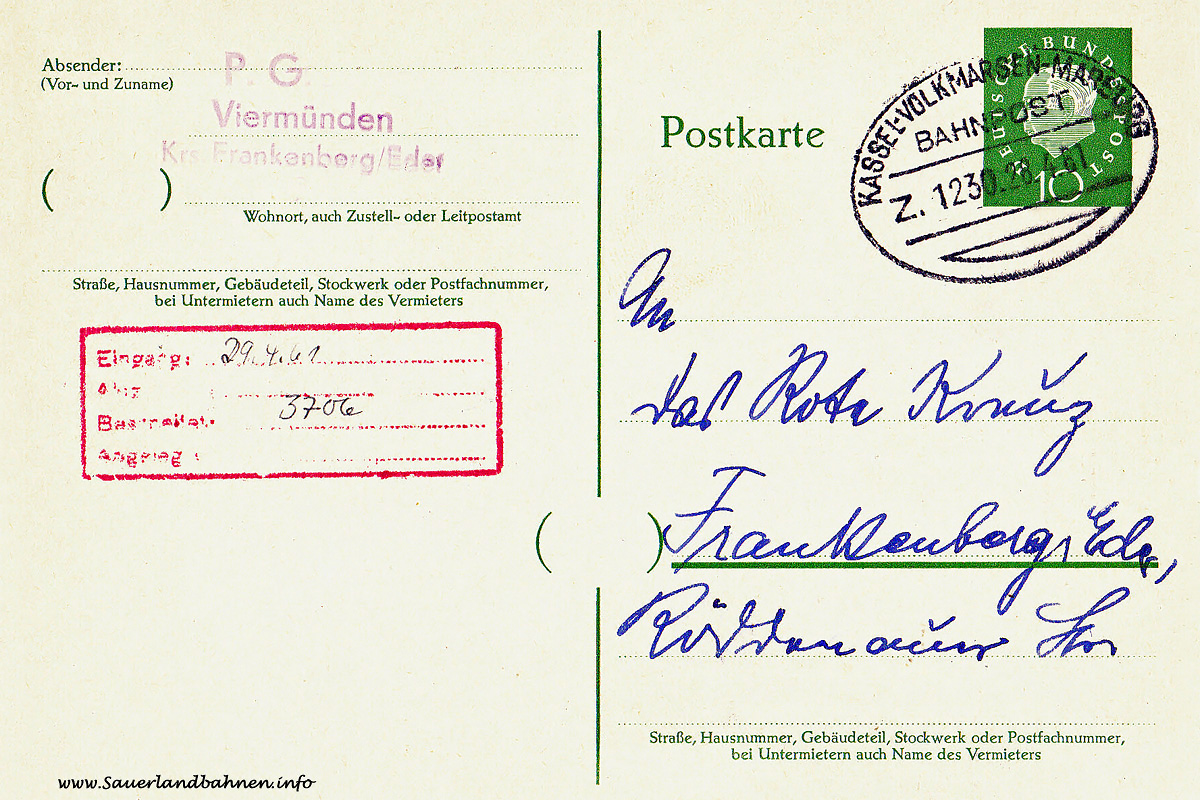 Absender:
(Vor- und Zuname)
P. G.
Viermünden
Krs. Frankenberg/Eder
( )
Wohnort, auch Zustell- oder Leitpostamt
Straße, Hausnummer, Gebäudeteil, Stockwerk oder Postfachnummer,
bei Untermietern auch Name des Vermieters
Eingang: 29.4.61
3706
Postkarte
DEUTSCHE BUNDESPOST
10
KASSEL-VOLKMARSEN-MARBURG
BAHNPOST
Z. 1230.28.4.61
An
das Rote Kreuz
( ) Frankenberg, Eder,
Röddenauer Str
Straße, Hausnummer, Gebäudeteil, Stockwerk oder Postfachnummer,
bei Untermietern auch Name des Vermieters
www.Sauerlandbahnen.info